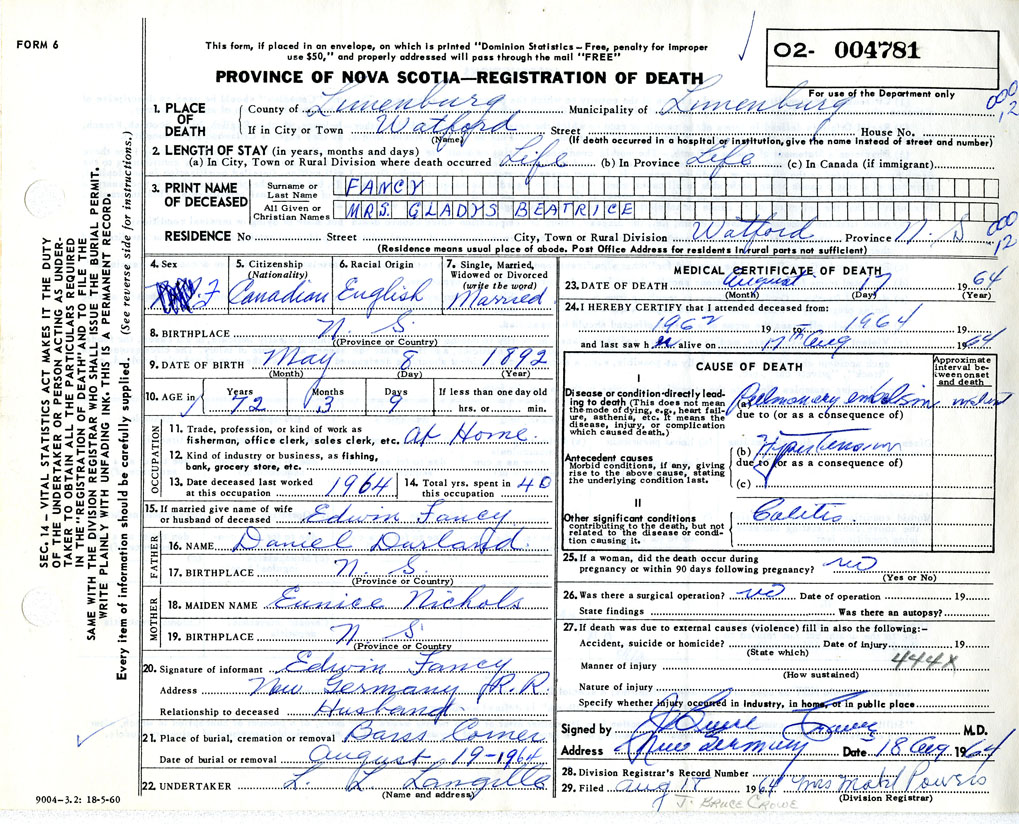 FORM 6
This form, if placed in an envelope, on which is printed "Dominion Statistics – Free, penalty for improper
use $50," and properly addressed will pass through the mail "FREE"
O2- 004781
PROVINCE OF NOVA SCOTIA—REGISTRATION OF DEATH
For use of the Department only
000
12
1. PLACE OF DEATH
County of Lunenburg Municipality of Lunenburg
If in City or Town Watford Street House No.
(Name) (If death occurred in a hospital or institution, give the name instead of street and number)
2. LENGTH OF STAY (in years, months and days)
(a) In City, Town or Rural Division where death occurred Life (b) In Province Life (c) In Canada (if immigrant)
3. PRINT NAME OF DECEASED
Surname or Last Name FANCY
All Given or Christian Names MRS. GLADYS BEATRICE
000
12
RESIDENCE No Street City, Town or Rural Division Watford Province N. S
(Residence means usual place of abode. Post Office Address for residents in rural parts not sufficient)
4. Sex F
5. Citizenship (Nationality) Canadian
6. Racial Origin English
7. Single, Married, Widowed or Divorced (write the word) Married
8. BIRTHPLACE N. S.
(Province or Country)
9. DATE OF BIRTH May 8 1892
(Month) (Day) (Year)
10. AGE in Years 72 Months 3 Days 9 If less than one day old
hrs. or min.
OCCUPATION
11. Trade, profession, or kind of work as
fisherman, office clerk, sales clerk, etc. At Home.
12. Kind of industry or business, as fishing,
bank, grocery store, etc.
13. Date deceased last worked at this occupation 1964
14. Total yrs. spent in this occupation 40
15. If married give name of wife
or husband of deceased Edwin Fancy
FATHER
16. NAME Daniel Durland
17. BIRTHPLACE N. S.
(Province or Country)
MOTHER
18. MAIDEN NAME Eunice Nichols
19. BIRTHPLACE N. S.
(Province or Country)
20. Signature of informant Edwin Fancy
Address New Germany R.R.
Relationship to deceased Husband.
21. Place of burial, cremation or removal Barss Corner
Date of burial or removal August 19-1964
22. UNDERTAKER L. L. Langille
(Name and address)
MEDICAL CERTIFICATE OF DEATH
23. DATE OF DEATH August 17 1964
(Month) (Day) (Year)
24. I HEREBY CERTIFY that I attended deceased from:
1962 19 to 1964 19
and last saw h er alive on 17th Aug 1964
CAUSE OF DEATH
Approximate interval between onset and death
I
Disease or condition directly leading to death (This does not mean the mode of dying, e.g., heart failure, asthenia, etc. It means the disease, injury, or complication which caused death.)
(a) Pulmonary embolism
due to (or as a consequence of)
Antecedent causes
Morbid conditions, if any, giving rise to the above cause, stating the underlying condition last.
(b) Hypertension
due to (or as a consequence of)
(c)
II
Other significant conditions
contributing to the death, but not related to the disease or condition causing it.
Colitis.
25. If a woman, did the death occur during
pregnancy or within 90 days following pregnancy? no
(Yes or No)
26. Was there a surgical operation? no Date of operation 19
State findings Was there an autopsy?
27. If death was due to external causes (violence) fill in also the following:–
Accident, suicide or homicide? Date of injury 19
(State which)
444X
Manner of injury
(How sustained)
Nature of injury
Specify whether injury occurred in industry, in home, or in public place
Signed by J Bruce Crowe M.D.
Address New Germany Date 18 Aug 1964
28. Division Registrar's Record Number
29. Filed Aug 1964 Mrs Powers
(Division Registrar)
J. BRUCE CROWE
9004–3.2: 18-5-60
SEC. 14 — VITAL STATISTICS ACT MAKES IT THE DUTY
OF THE UNDERTAKER OR PERSON ACTING AS UNDER-
TAKER TO OBTAIN ALL THE PARTICULARS REQUIRED
IN THE "REGISTRATION OF DEATH" AND TO FILE THE
SAME WITH THE DIVISION REGISTRAR WHO SHALL ISSUE THE BURIAL PERMIT.
WRITE PLAINLY WITH UNFADING INK. THIS IS A PERMANENT RECORD.
Every item of information should be carefully supplied. (See reverse side for instructions.)